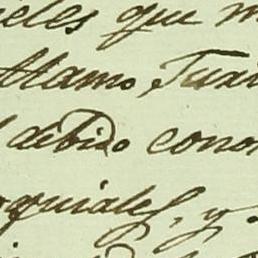 que
Alamo, Tuxi
debido cono
quiales, y